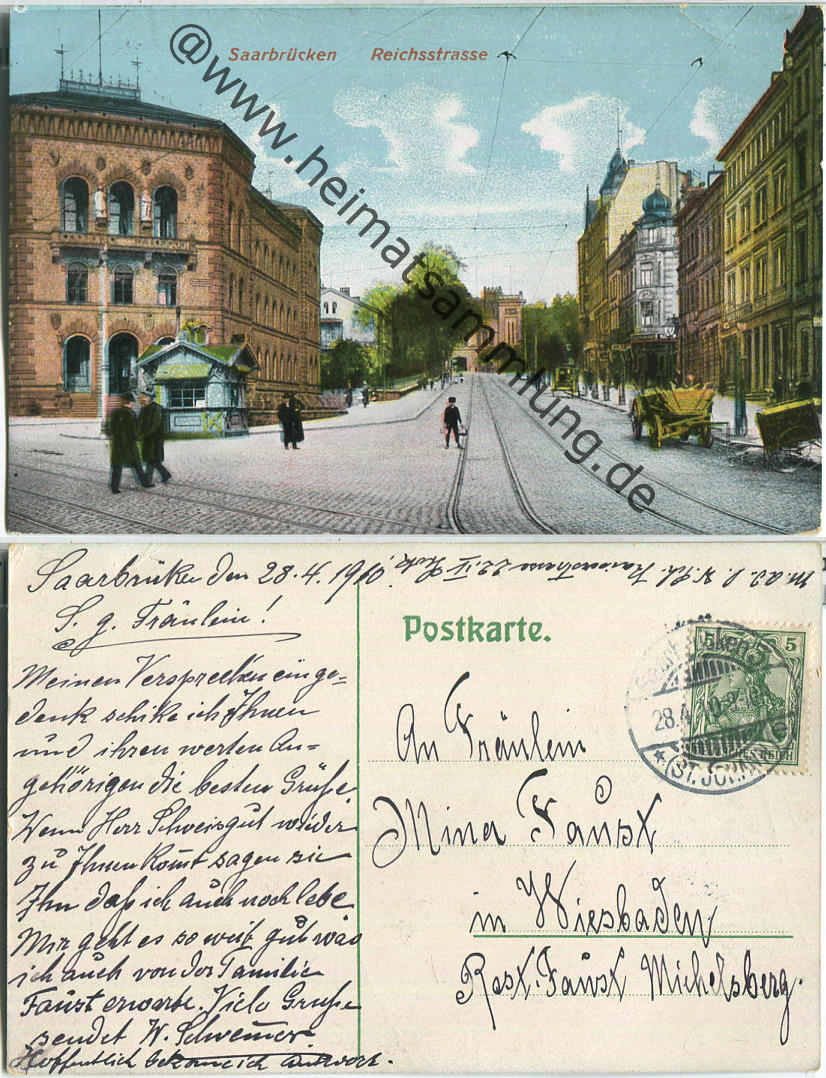 Saarbrücken Reichsstrasse
@www.heimatsammlung.de
Saarbrüken den 28.4.1910
S. g. Fräulein!
Meinen Versprechen einge=
denk schike ich Ihnen
und ihren werten An=
gehörigen die besten Grüße
Wenn Herr Schweisgut wieder
zu Ihnen komt sagen sie
Ihn daß ich auch noch lebe
Mir geht es so weit gut was
ich auch von der Familie
Faust erwarte. Viele Grüße
sendet W.
Hoffentlich bekome ich antwort.
Postkarte.
5
28.4.10
*(ST. JOHANN)
An Fräulein
Mina Faust
in Wiesbaden
Rest. Faust Michelsberg.